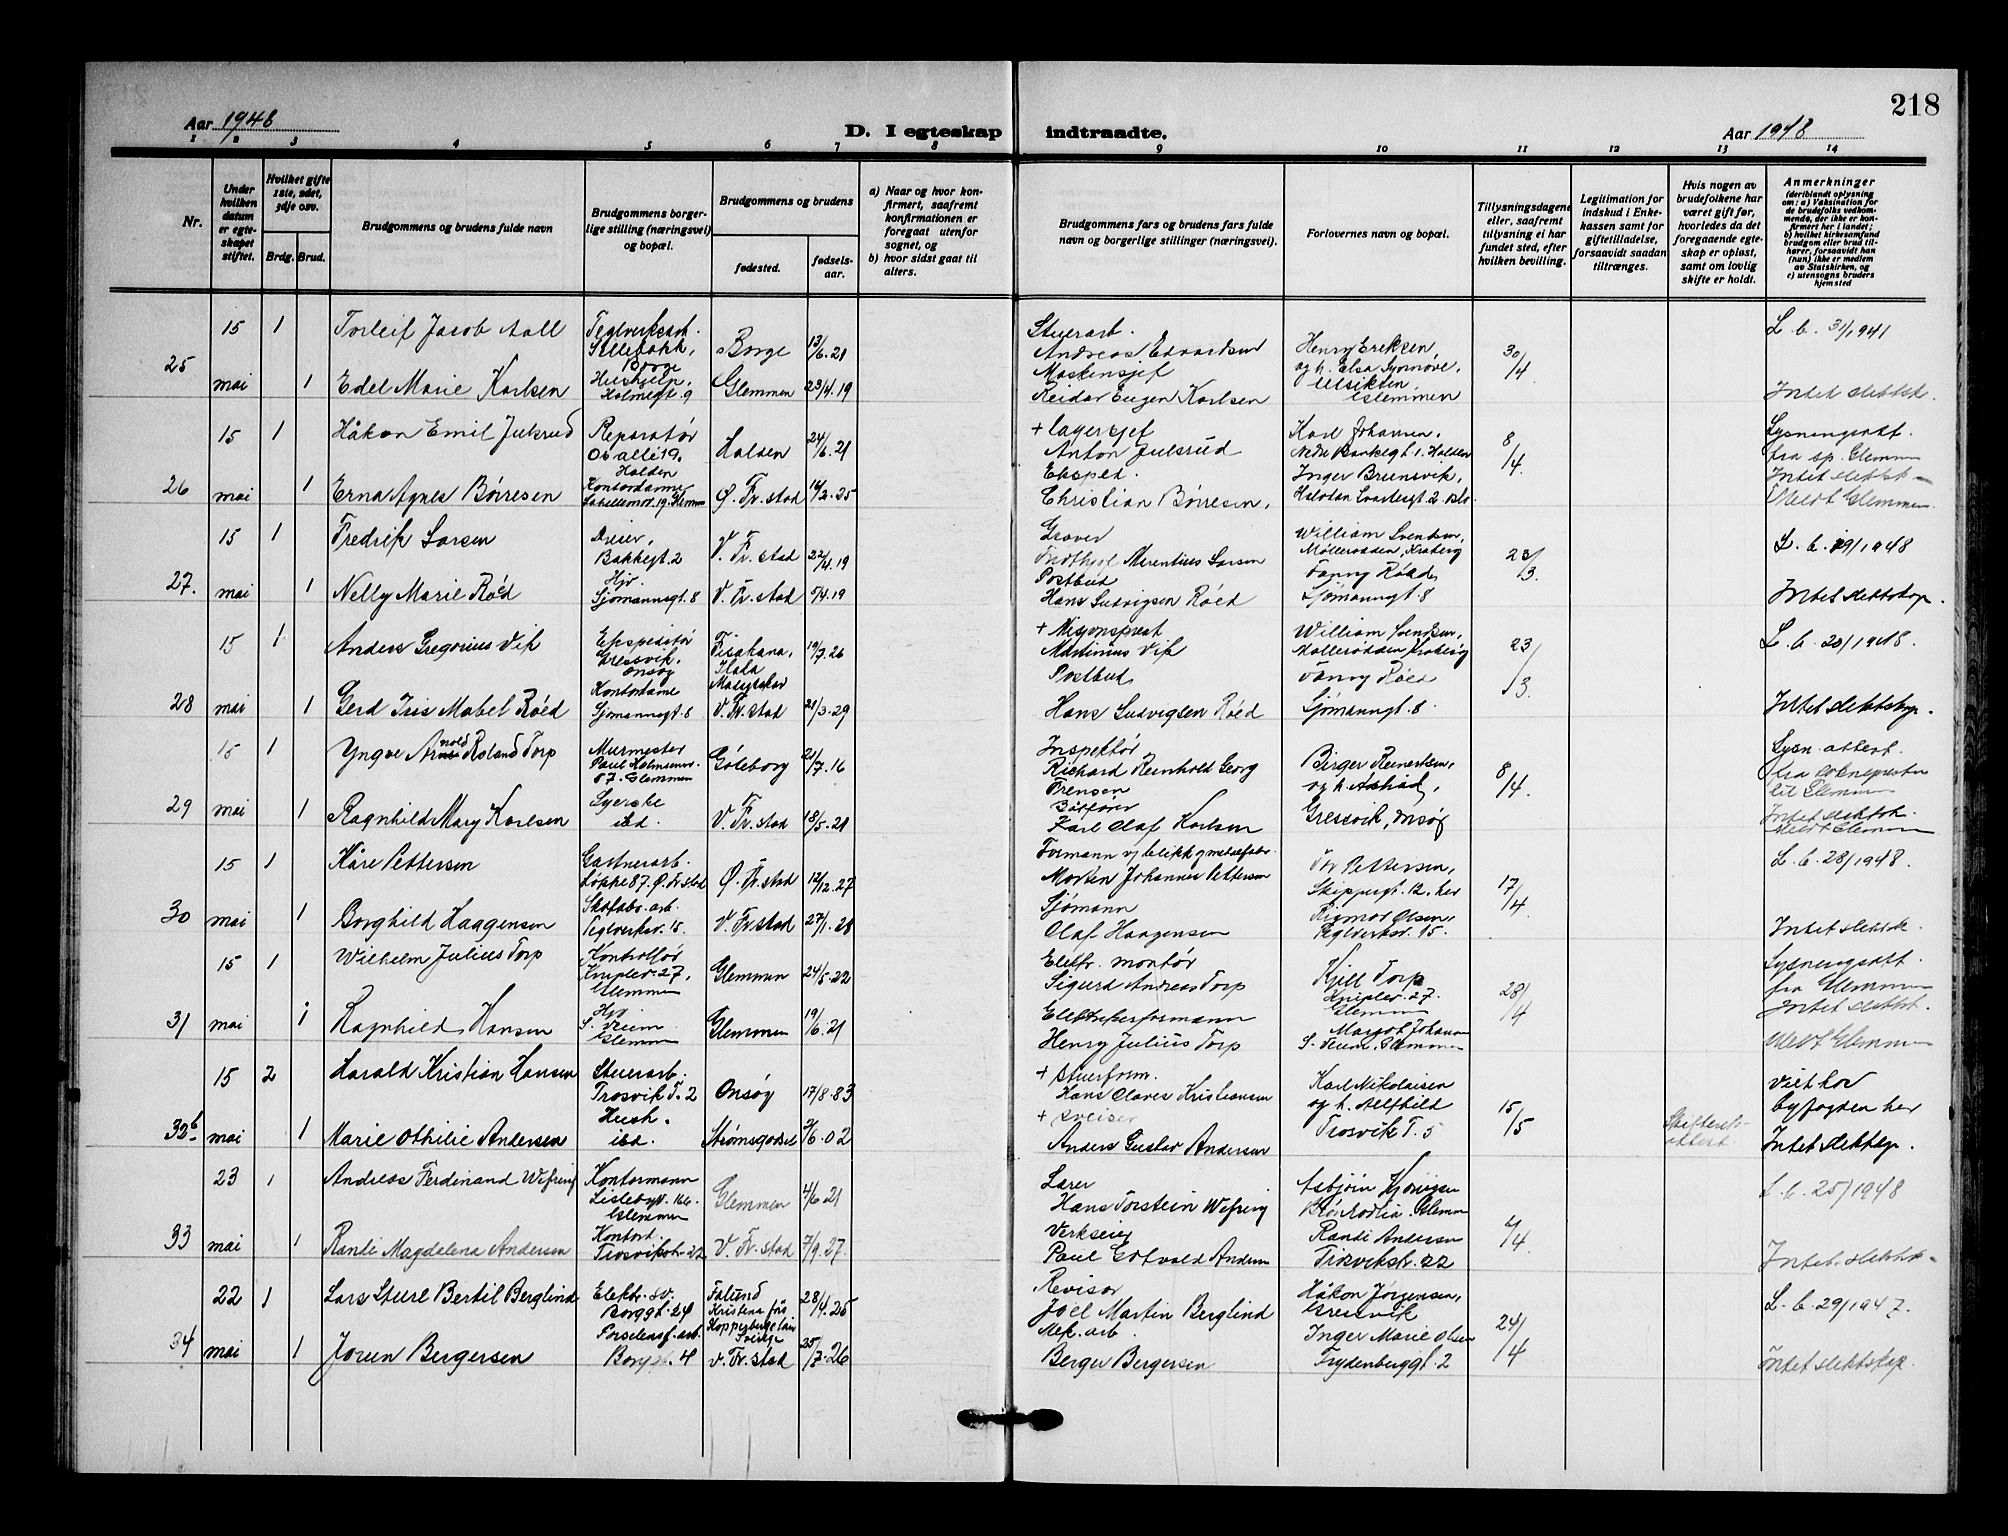 218
Aar 1948
D. I egteskap indtraadte.
Aar 1948
1 2 3 4 5 6 7 8 9 10 11 12 13 14
Nr.
Under hvilken datum er egteskapet stiftet.
Hvilket gifte 1ste, 2det, 3dje osv.
Brdg. Brud.
Brudgommens og brudens fulde navn
Brudgommens borgerlige stilling (næringsvei) og bopæl.
Brudgommens og brudens
fødested. fødselsaar.
a) Naar og hvor konfirmert, saafremt konfirmationen er foregaat utenfor sognet, og
b) hvor sidst gaat til alters.
Brudgommens fars og brudens fars fulde navn og borgerlige stillinger (næringsvei).
Forlovernes navn og bopæl.
Tillysningsdagene eller, saafremt tillysning ei har fundet sted, efter hvilken bevilling.
Legitimation for indskud i Enkekassen samt for giftetilladelse, forsaavidt saadan tiltrænges.
Hvis nogen av brudefolkene har været gift før, hvorledes da det foregaaende egteskap er opløst, samt om lovlig skifte er holdt.
Anmerkninger
(deriblandt oplysning om: a) Vaksination for de brudefolks vedkommende, der ikke er konfirmert her i landet; b) hvilket kirkesamfund brudgom eller brud tilhører, forsaavidt han (hun) ikke er medlem av Statskirken, og c) utensogns bruders hjemsted
25 15 mai 1 1
Torleif Jacob Aall
Edel Marie Karlsen
Borge 13/6.21
Glemmen 23/4.19
Hushjelp, Holmegt. 9
Stuerarb.
Andreas Edvardsen
Maskinsjef
Reidar Eugen Karlsen
Henry Eriksen
og h. Elsa Synnøve,
Utsikten,
Glemmen
30/4
L. b. 31/1941
Intet slektsk.
26 15 mai 1 1
Håkon Emil Julsrud
Erna Agnes Børresen
Reparatør
Os allé 19,
Halden
Kontordame
Halden 24/6.21
Ø. Fr.stad 14/2.25
+ Lagersjef
Anton Julsrud
Eksped.
Christian Børresen,
Karl Johansen,
Nedre Bankegt. 1. Halden
Inger Brunsvik,
8/4
Lysningsatt.
fra sp. Glemmen
Intet slektsk
Meldt Glemmen
27. 15 mai 1 1
Fredrik Larsen
Nelly Marie Røed
Dreier,
Bakkegt. 2
Hjv.
Sjømannsgt. 8
V. Fr. stad 22/4.19
V. Fr. stad 5/4.19
Graver
Marentius Larsen
Postbud
Hans Ludvigsen Røed
William Svendsen,
Mølleradden, Kråkerøy
Fanny Røed,
Sjømannsgt. 8
/3.
L. b. 19/1948
Intet slektskap.
28 15 mai 1 1
Anders Gregorius Vik
Gerd Iris Mabel Røed
Ekspeditør
Gressvik.
Onsøy
Kontordame
Sjømannsgt. 8
19/7.26
V. Fr. stad 21/3.29
+ Misjonsprest
Martinius Vik
Postbud
Hans Ludvigsen Røed
William Svendsen,
Mølleradden Kråkerøy
Fanny Røed
Sjømannsgt. 8.
23/3
L. b. 20/1948.
Intet slektskap.
29 15 mai 1 1
Yngve Arnold Roland Torp
Ragnhild Mary Karlsen
Murmester
Paul Holmsensv.
87. Glemmen
Syerske
ibd.
Göteborg 21/7.16
V. Fr. stad 18/5.21
Inspektør
Richard Reinhold Georg
Karl Olaf Karlsen
Birger Reinertsen,
og h. Aslaug,
Gressvik, Onsøy
8/4.
Lysn. attest.
fra soknepresten
til Glemmen
Intet slektsk.
Meldt Glemmen
30 15 mai 1 1
Kåre Pettersen
Borghild Haagensen
Gartnerarb.
Løkke 87. Ø. Fr.stad
Skofabr. arb.
Teglverksv. 15.
Ø. Fr. stad 12/12.27
V. Fr. stad 27/1.28
Formann v/ blikk og metallfabr.
Morten Johannes Pettersen
Sjømann
Olaf Haagensen
Tor Pettersen,
Skippergt. 12, her
Rigmor Olsen,
Teglverksv. 15.
17/4
L. b. 28/1948.
Intet slektsk.
31 15 mai 1 1
Wilhelm Julius Torp
Ragnhild Hansen
Kontrollør
Kniplev. 27,
Glemmen
Hjv
S. Veum.
Glemmen
Glemmen 24/5.22
Glemmen 19/6.21
Elektr. montør
Sigurd Andreas Torp
Elektrikerformann
Henry Julius Torp
Kjell Torp
Kniplev. 27.
Glemmen
Margot Johansen
S. Veum, Glemmen
28/4
Lysningsatt.
fra Glemmen
Intet slektsk.
Meldt Glemmen
32b 15 mai 2 1
Harald Kristian Hansen
Marie Othilie Andersen
Stuerarb.
Trosvik T. 2
Hush.
ibd.
Onsøy 17/8.83
Strømsgodset 2/6.02
+ Stuerform.
Hans Clares Kristiansen
+ Sveiser
Anders Gustav Andersen
Karl Nikolaisen
og h. Alfhild
Trosvik T. 5
15/5
Skifteretts-
attest.
Viet hos
byfogden her
Intet slektskap.
33 23 mai 1 1
Andreas Ferdinand Wefring
Randi Magdalena Andersen
Kontormann
Lislebyv. 166.
Glemmen
Kontord.
Trosvikstr. 22
Glemmen 4/6 21
V. Fr. stad 7/9.27.
Lærer
Hans Torstein Wefring
Verkseier
Paul Gotvald Andersen
Asbjørn
Glemmen
Randi Andersen
Trosvikstr. 22
4/4
L. b. 25/1948
Intet slektsk.
34 22 mai 1 1
Lars Sture Bertil Berglind
Jorun Bergersen
Elektr. sv.
Borggt. 24
Porselensf. arb.
Borggt. 4
Falund
Kristina förs
Kopparbergs län
Sverige 28/4.25
V. Fr. stad 25/7.26
Revisor
Joel Martin Berglind
Mek. arb.
Berger Bergersen
Håkon Jørgensen,
Gressvik
Inger Marie Olsen
Frydenberggt. 2
24/4
L. b. 29/1947.
Intet slektskap.